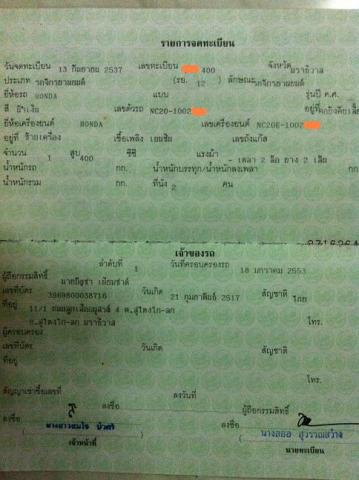 รายการจดทะเบียน
วันจดทะเบียน 13 กันยายน 2537 เลขทะเบียน 400 จังหวัด นราธิวาส
ประเภท รถจักรยานยนต์ (รย. 12 ) ลักษณะ รถจักรยานยนต์
ยี่ห้อรถ HONDA แบบ รุ่นปี ค.ศ.
สี เลขตัวรถ NC20-1002 อยู่ที่
ยี่ห้อเครื่องยนต์ HONDA เลขเครื่องยนต์ NC20E-1002
อยู่ที่ ข้างเครื่อง เชื้อเพลิง เบนซิน เลขถังแก๊ส
จำนวน 1 สูบ 400 ซีซี แรงม้า - เพลา 2 ล้อ ยาง 2 เส้น
น้ำหนักรถ กก. น้ำหนักบรรทุก/น้ำหนักลงเพลา กก.
น้ำหนักรวม กก. ที่นั่ง 2 คน
เจ้าของรถ
ลำดับที่ 1 วันที่ครอบครองรถ 18 มกราคม 2553
ผู้ถือกรรมสิทธิ์
เลขที่บัตร 3969800038716 วันเกิด 21 กุมภาพันธ์ 2517 สัญชาติ ไทย
ที่อยู่ 11/1 4 ต.สุไหงโก-ลก
อ.สุไหงโก-ลก นราธิวาส โทร.
ผู้ครอบครอง
เลขที่บัตร วันเกิด สัญชาติ
ที่อยู่
โทร.
สัญญาเช่าซื้อเลขที่ ลงวันที่
ลงชื่อ ผู้ถือกรรมสิทธิ์
ลงชื่อ ลงชื่อ
เจ้าหน้าที่ นายทะเบียน